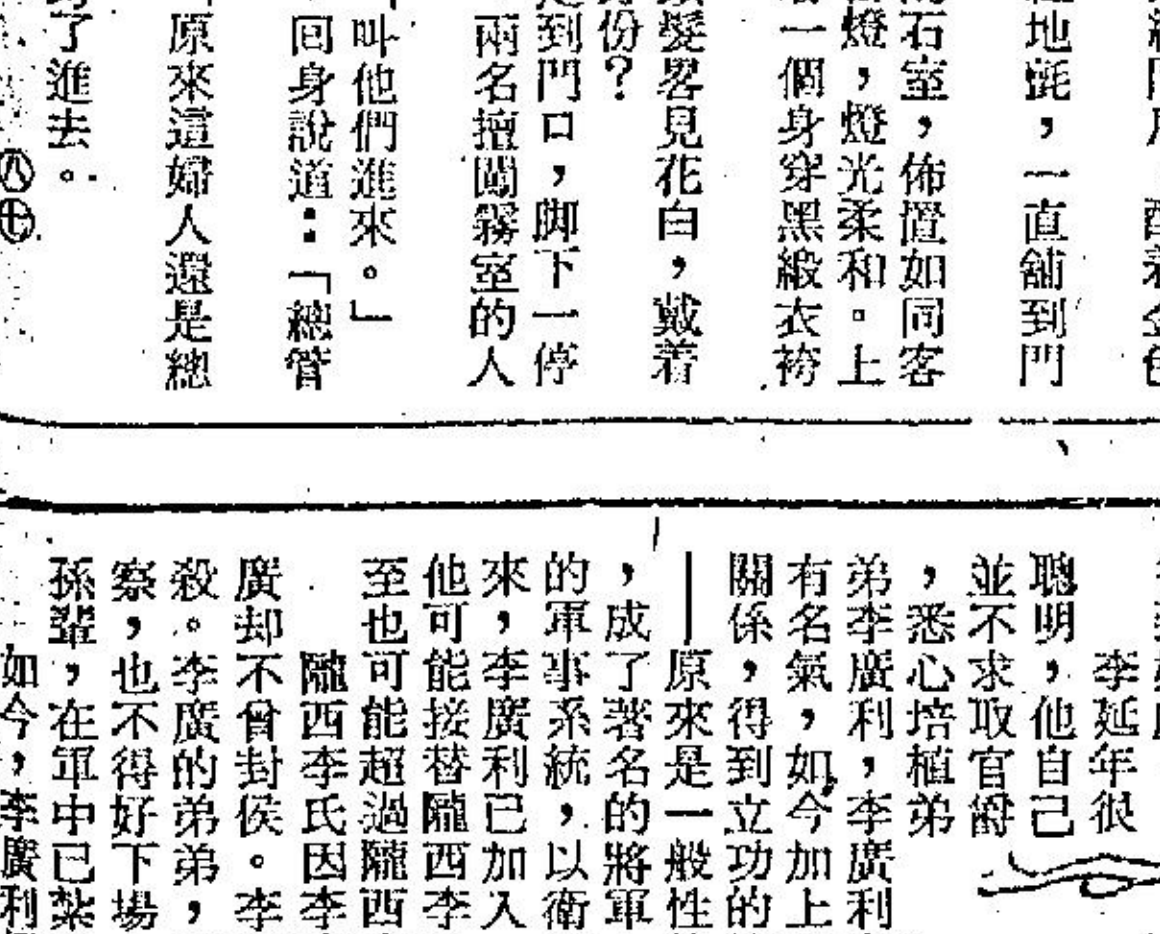 地氈，一直舖到門
石室，佈置如同客
燈，燈光柔和。上
一個身穿黑緞衣袴
髮畧見花白，戴着
份？
到門口，脚下一停
兩名擅闖霧室的人
叫他們進來。」
回身說道：「總管
原來這婦人還是總
了進去。
㊇㊉
李延年很
聰明，他自己
並不求取官爵
，悉心培植弟
弟李廣利，李廣利
有名氣，如今加上
關係，得到立功的
——原來是一般性
，成了著名的將軍
的軍事系統，以衛
來，李廣利已加入
他可能接替隴西李
至也可能超過隴西
隴西李氏因李
廣却不曾封侯。李
殺。李廣的弟弟，
察，也不得好下場
孫輩，在軍中已紮
如今，李廣利